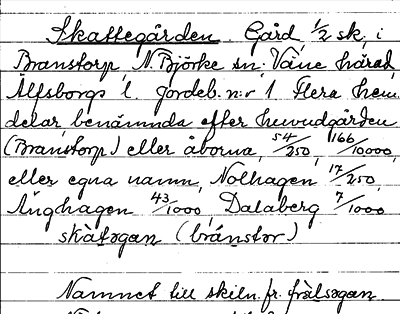 Skattegården. Gård, 1/2 sk, i
Branstorp, N. Björke sn; Väne härad,
Älfsborgs l. Jordeb. n:r 1. Flera hem.
delar, benämnda efter huvudgården
(Branstorp) eller åborna, 54/250, 166/10000,
eller egna namn, Nolhagen 17/250,
Änghagen 43/1000, Dalaberg 7/1000
skàtəgan (bránstor)
Namnet till skiln. fr. frälsəgan.